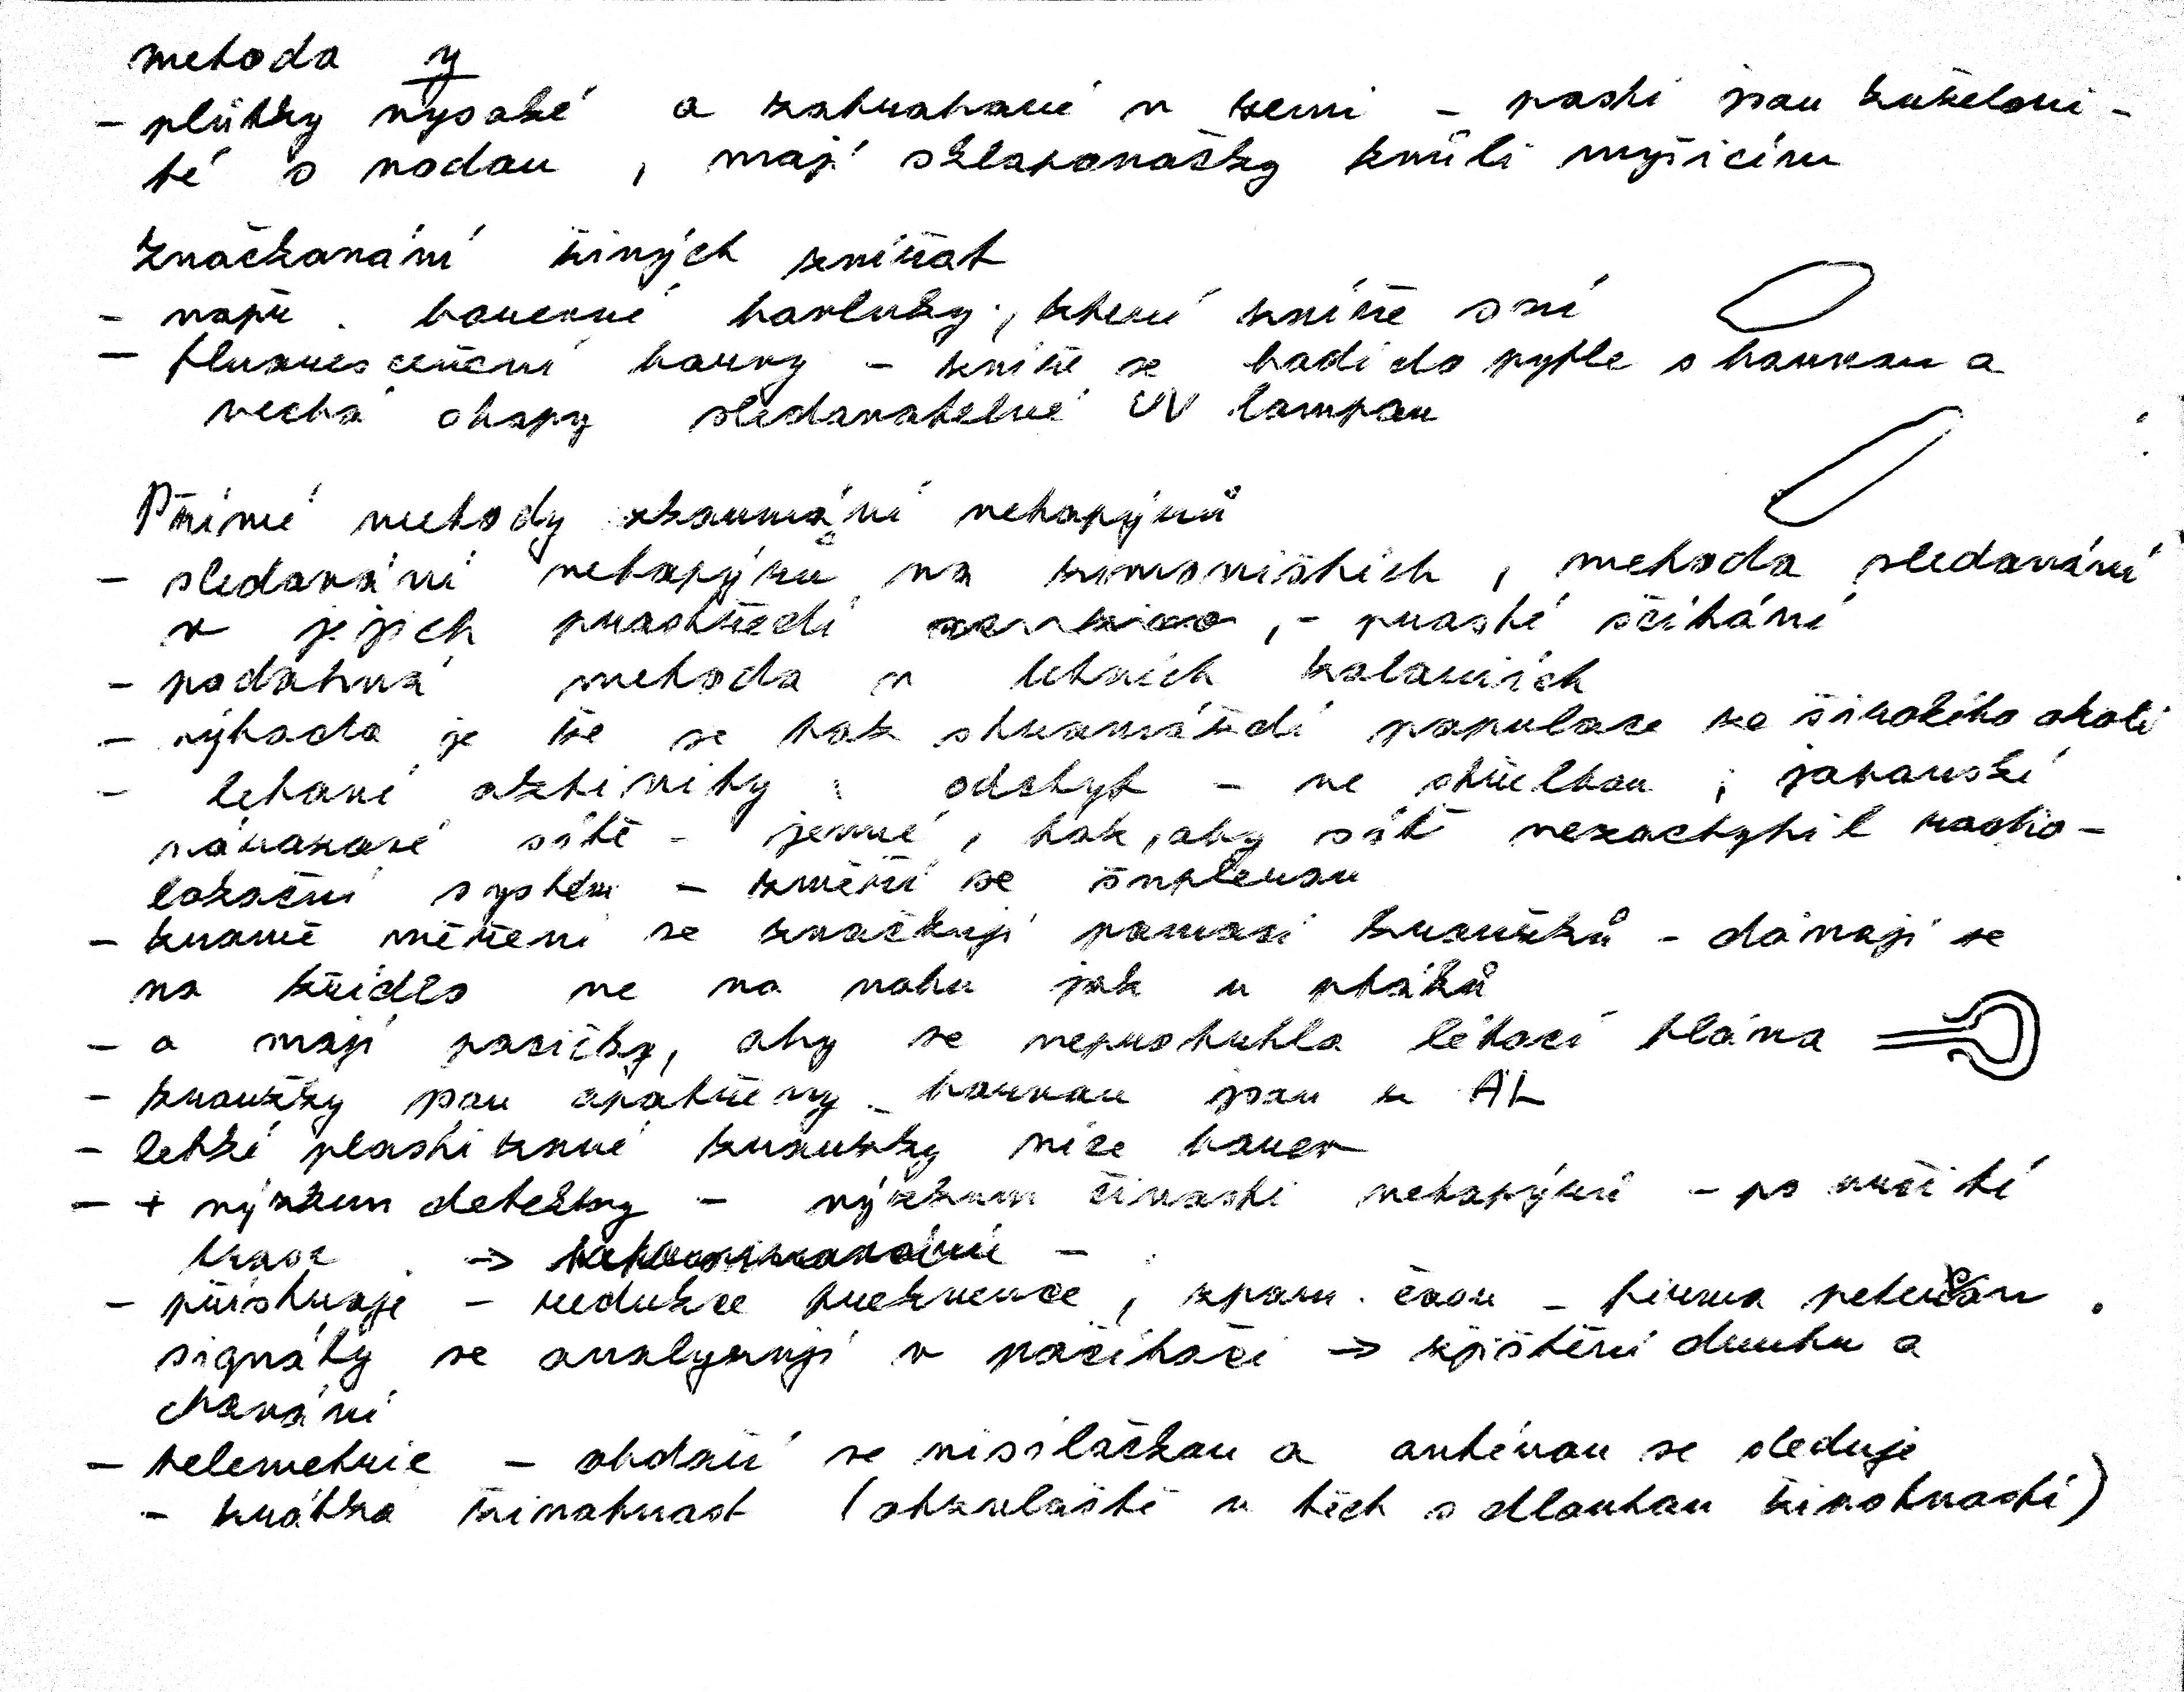 metoda Y
- plůtky vysoké a zahrabané v zemi - pasti jsou kuželovi-
té s vodou, mají sklapovačky kvůli myšicím
Značkování živých zvířat
- např. barevné korluky, které zvíře sní
- fluorescenční barvy - zvíře se hodí do pytle s barvou a
nechá stopy sledovatelné UV lampou
Přímé metody zkoumání netopýrů
- sledování netopýrů na zimovištích, metoda sledování
v jejich prostředí, - prosté sčítání
- podobná metoda v letních koloniích
- výhoda je že se tak shromáždí populace ze širokého okolí
- letové aktivity: odchyt - ne střelbou; japonské
nárazové sítě - jemné, tak, aby sítě nezachytil radio-
lokační systém - změří se šuplerou
- kromě měření se značkují pomocí kroužků - dávají se
na křídlo ne na nohu jak u ptáků
- a mají pacičky, aby se neprotrhla létací blána
- kroužky jsou opatřeny barvou jsou z AL
- lehké plastikové kroužky více barev
- + výzkum detektory - výzkum činnosti netopýrů - po určité
trase →
- přístroje - redukce frekvence, zpom. času - firma peterson.
signály se analyzují v počítači → zjištění druhu a
chování
- telemetrie - obdaří se vysílačkou a anténou se sleduje
- krátká životnost (obzvláště u těch s dlouhou životností)